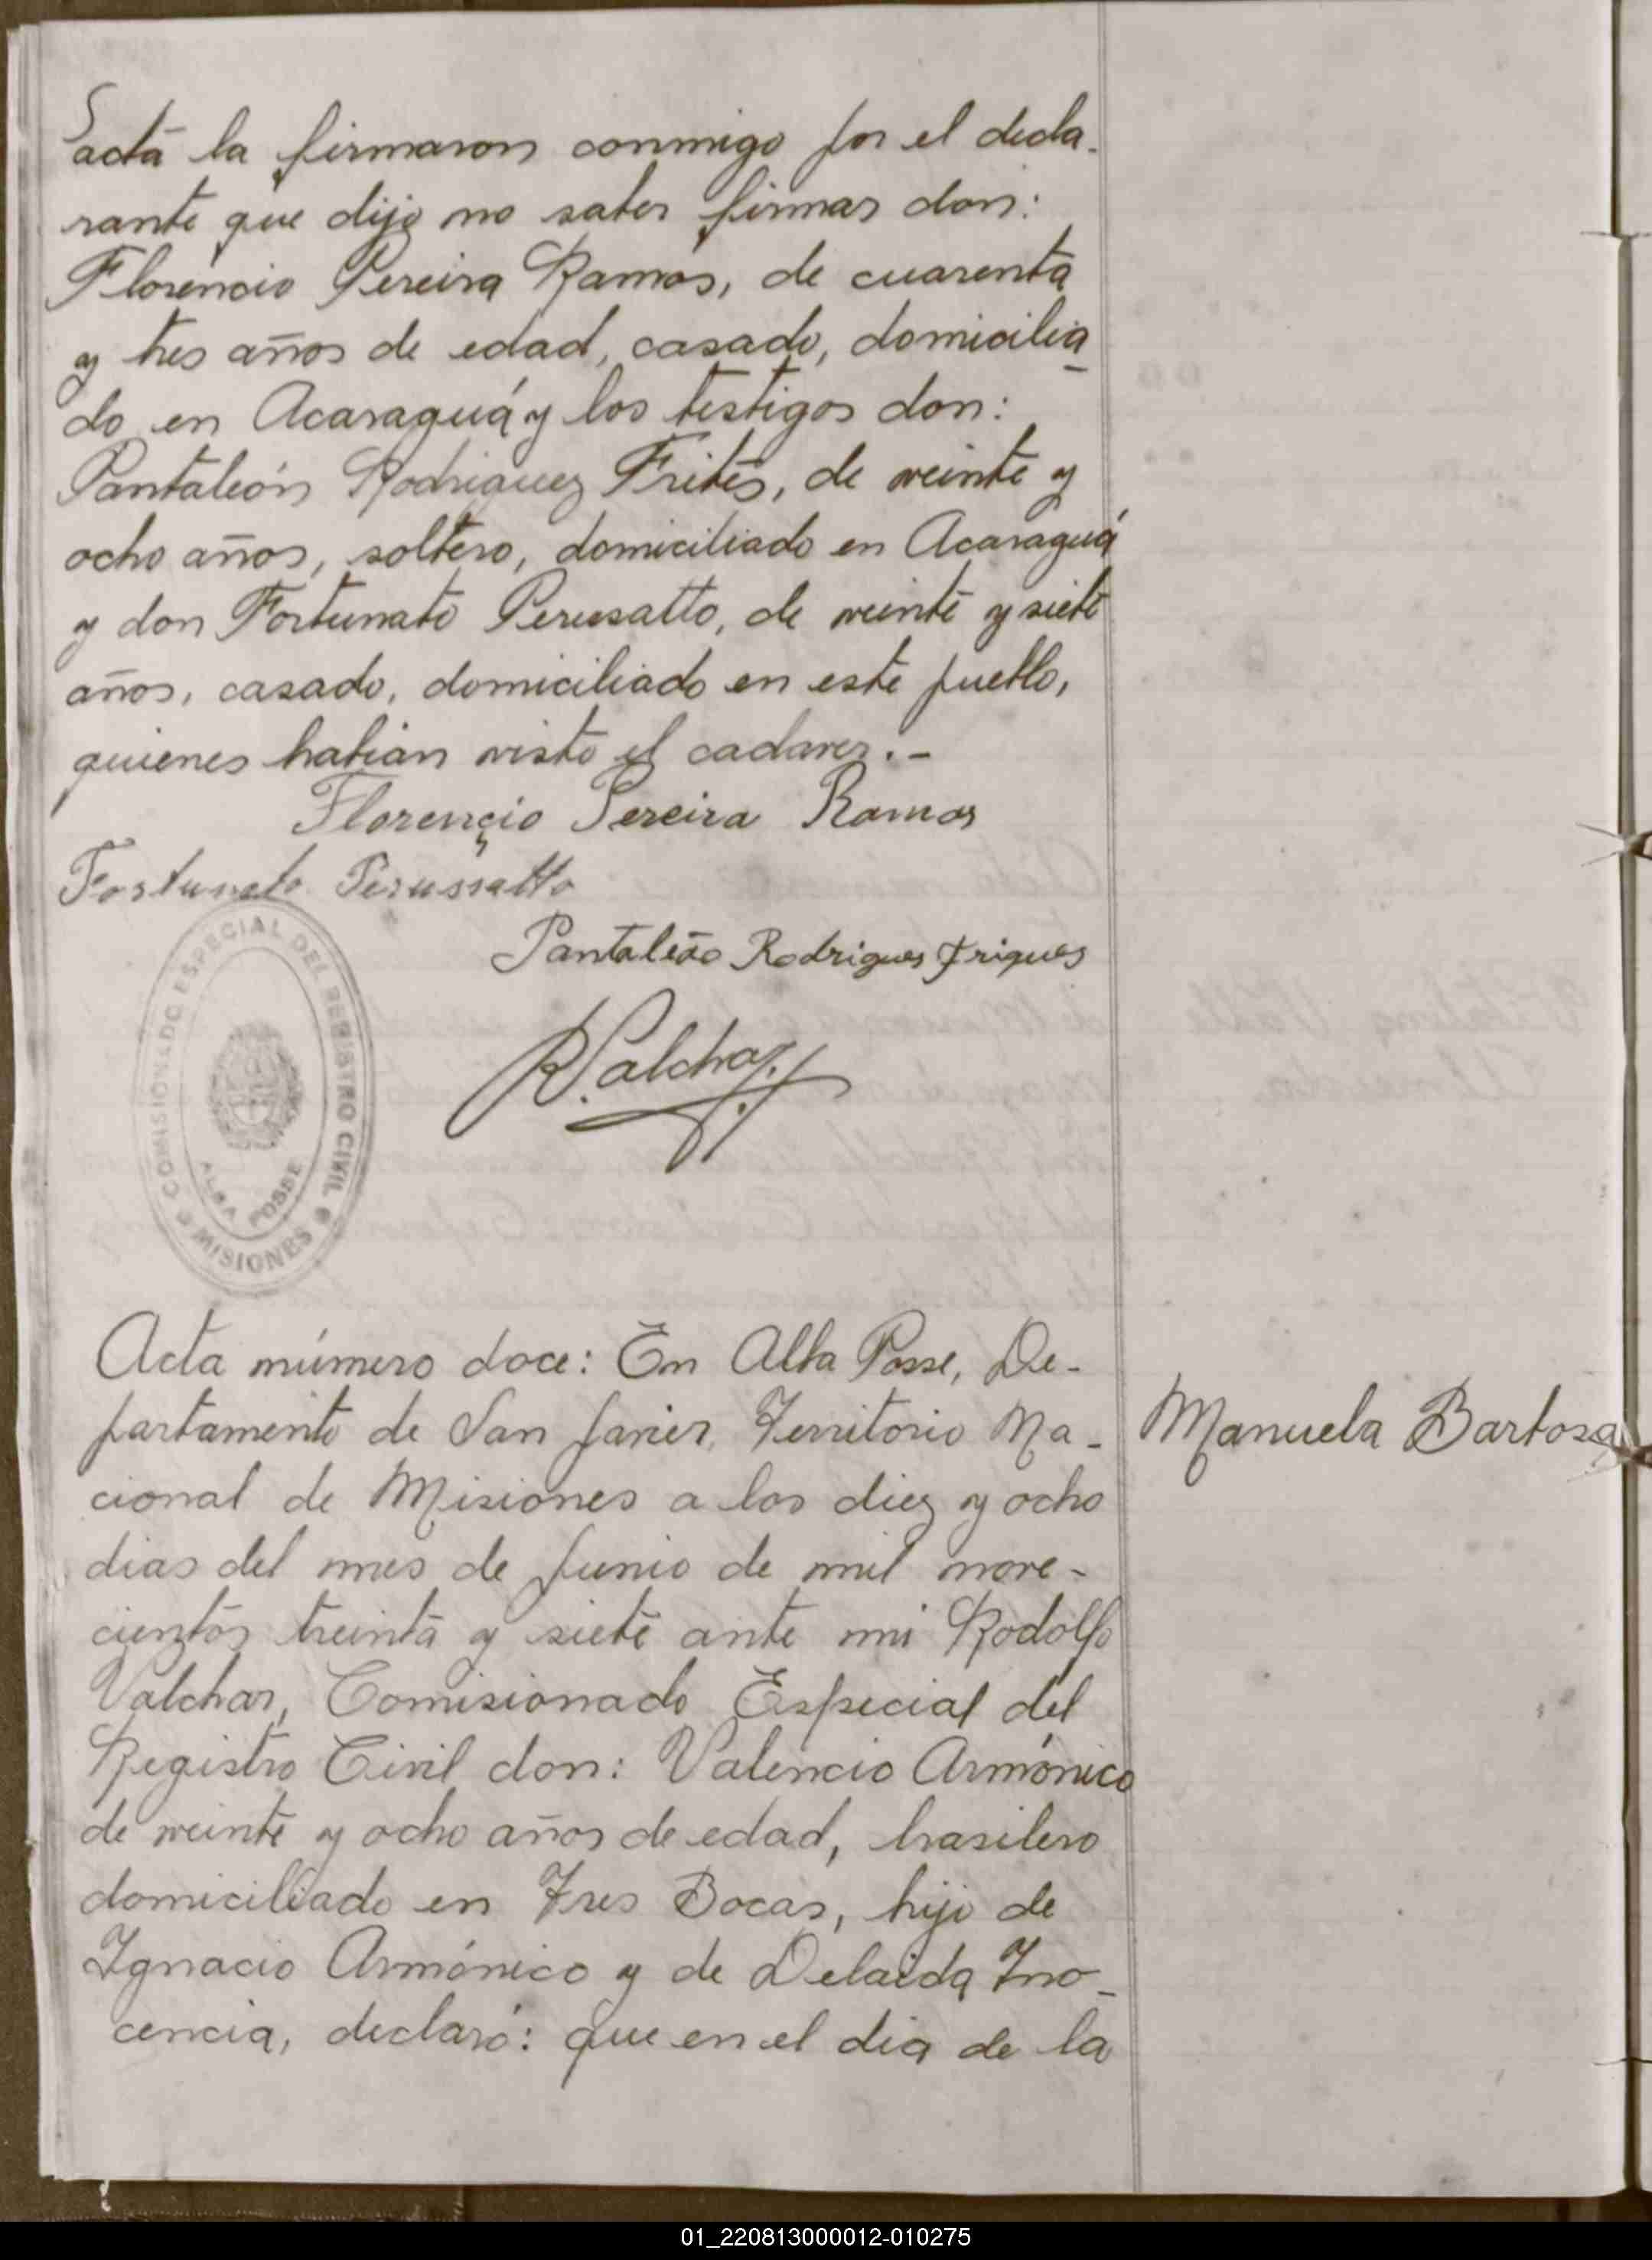 acta la firmaron conmigo por el decla-
rante que dijo no saber firmar don:
Florencio Pereira Ramos, de cuarenta
y tres años de edad, casado, domicilia-
do en Acaraguá y los testigos don:
Pantaleón Rodriguez Frites, de veinte y
ocho años, soltero, domiciliado en Acaraguá
y don Fortunato Perusatto, de veinte y siete
años, casado, domiciliado en este pueblo,
quienes habian visto el cadaver.-
Florencio Pereira Ramos
Fortunato Perussatto
Pantaleão Rodrigues Friques
R. Valchar
COMISIONADO ESPECIAL DEL REGISTRO CIVIL
ALBA POSSE
MISIONES
Acta número doce: En Alba Posse, De-
partamento de San Javier, Territorio Na-
cional de Misiones a los diez y ocho
dias del mes de Junio de mil nove-
cientos treinta y siete ante mi Rodolfo
Valchar, Comisionado Especial del
Registro Civil don: Valencio Armónico
de veinte y ocho años de edad, brasilero
domiciliado en Tres Bocas, hijo de
Ignacio Armónico y de Delaida Ino-
cencia, declaró: que en el dia de la
Manuela Barbosa
01_220813000012-010275